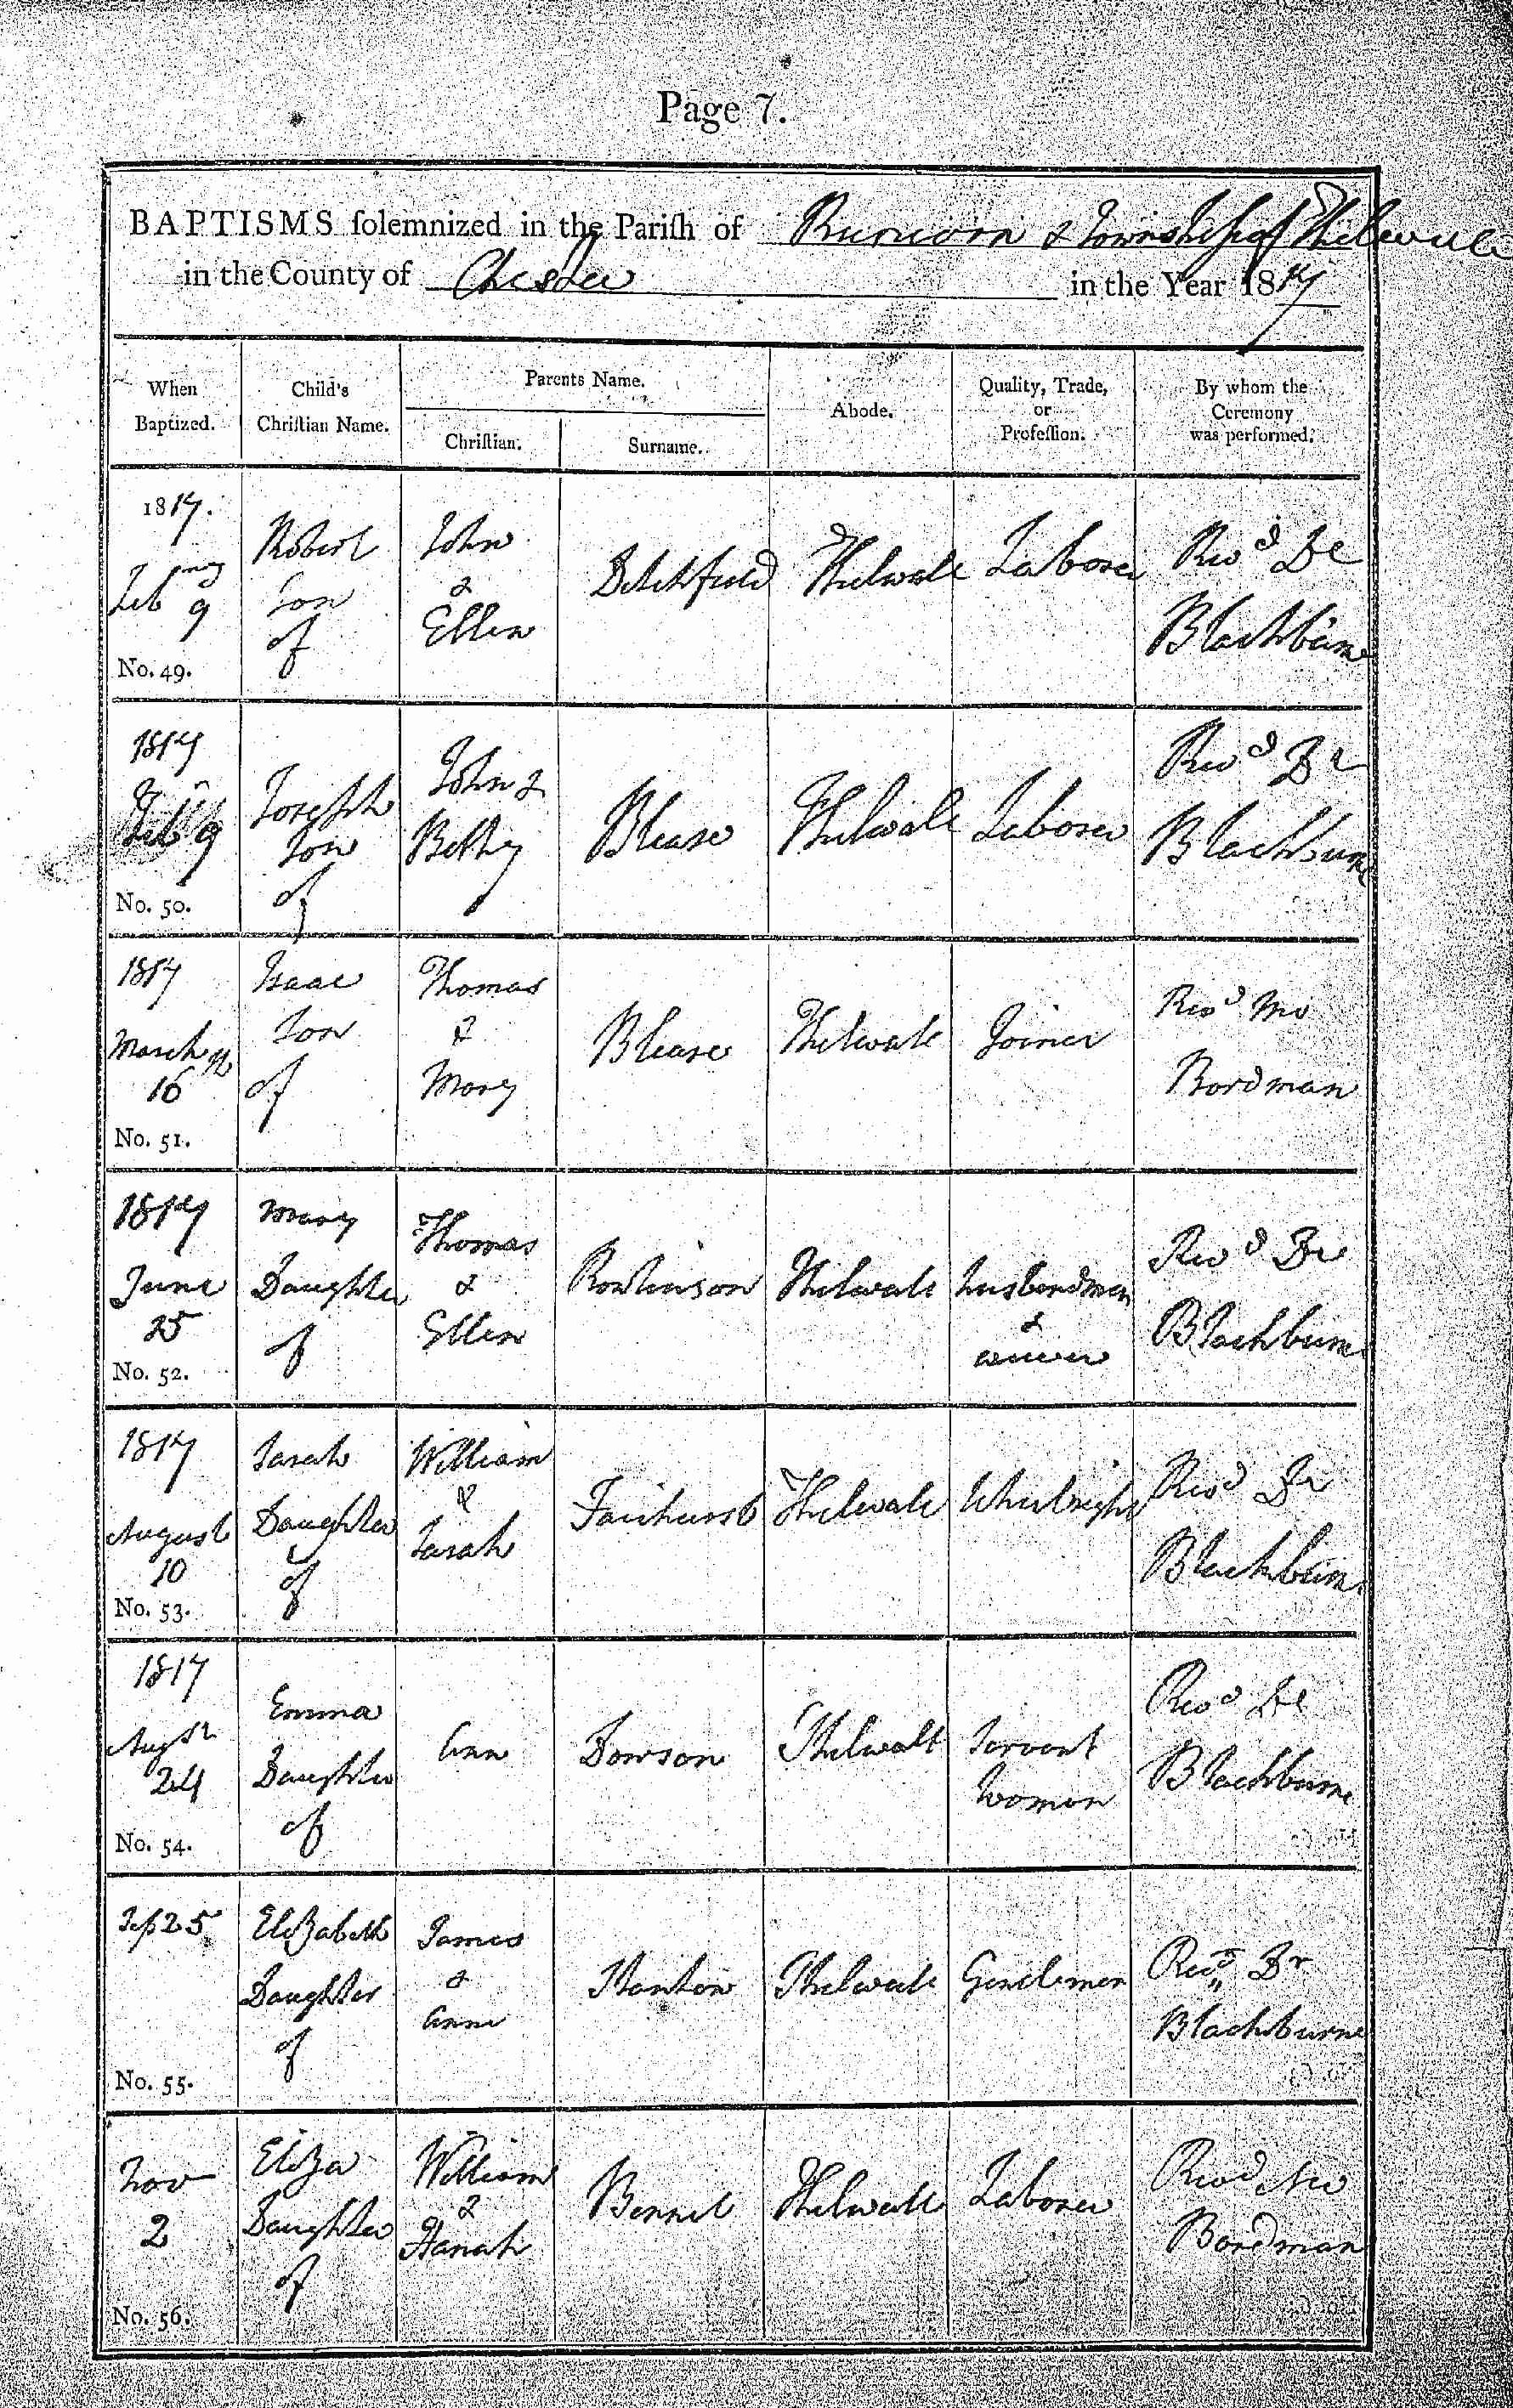 Page 7.
BAPTISMS ſolemnized in the Pariſh of Runcorn & Township of Thelwall
in the County of Chester in the Year 1817
When Baptized.
Child's Chriſtian Name.
Parents Name.
Chriſtian.
Surname.
Abode.
Quality, Trade, or Profeſſion.
By whom the Ceremony was performed.
1817. Feb 9 No. 49.
Robert Son of
John & Ellen
Ditchfield
Thelwall
Laborer
Revd Dr Blackburne
1817 Feb 9 No. 50.
Joseph Son of
John & Betty
Blease
Thelwall
Laborer
Revd Dr Blackburne
1817 March 16 No. 51.
Isaac Son of
Thomas & Mary
Blease
Thelwall
Joiner
Revd Mr Bordman
1817 June 25 No. 52.
Mary Daughter of
Thomas & Ellen
Rowlinson
Thelwall
husbandman & weaver
Revd Dr Blackburne
1817 August 10 No. 53.
Sarah Daughter of
William & Sarah
Fairhurst
Thelwall
Wheelright
Revd Dr Blackburne
1817 Augst 24 No. 54.
Emma Daughter of
Ann
Dowson
Thelwall
Servant Woman
Revd Dr Blackburne
Sep 25 No. 55.
Elizabeth Daughter of
James & Anne
Stanton
Thelwall
Gentleman
Revd Dr Blackburne
Nov 2 No. 56.
Eliza Daughter of
William & Hanah
Bennet
Thelwall
Laborer
Revd Mr Bordman